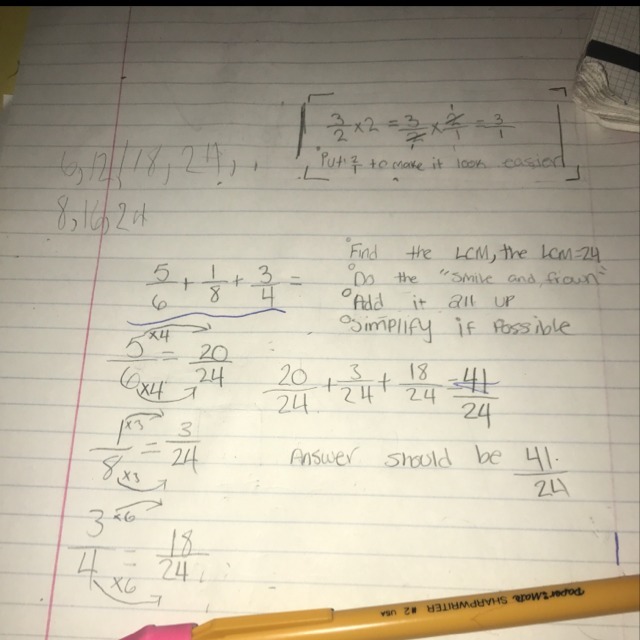 3/2 × 2 = 3/2 × 2/1 = 3/1
Put 2/1 to make it look easier
6, 12, 18, 24,
8, 16, 24
Find the LCM, the LCM=24
Do the "smile and frown"
Add it all up
Simplify if Possible
5/6 + 1/8 + 3/4 =
5/6 ×4 ×4 = 20/24
20/24 + 3/24 + 18/24 = 41/24
1/8 ×3 ×3 = 3/24
Answer should be 41/24
3/4 ×6 ×6 = 18/24
PaperMate SHARPWRITER #2 USA